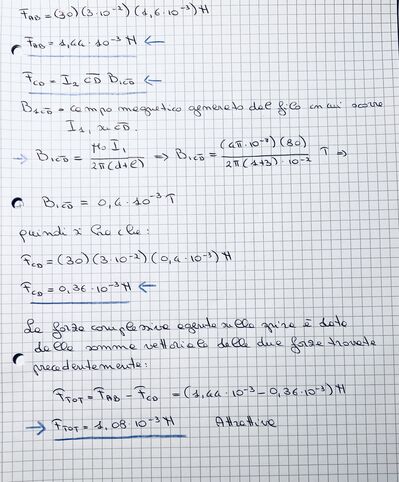 F_AB = (30)(3·10⁻²)(1,6·10⁻³) N
F_AB = 1,44·10⁻³ N ←
F_CD = I₂ CD B₁CD ←
B₁CD = campo magnetico generato dal filo in cui scorre
I₁, su CD.
→ B₁CD = μ₀ I₁ / 2π(d+l) => B₁CD = (4π·10⁻⁷)(80) / 2π(1+3)·10⁻² T =>
B₁CD = 0,4·10⁻³ T
quindi si ha che:
F_CD = (30)(3·10⁻²)(0,4·10⁻³) N
F_CD = 0,36·10⁻³ N ←
La forza complessiva agente sulla spira è data
dalla somma vettoriale delle due forze trovate
precedentemente:
F_TOT = F_AB - F_CD = (1,44·10⁻³ - 0,36·10⁻³) N
→ F_TOT = 1,08·10⁻³ N Attrattiva